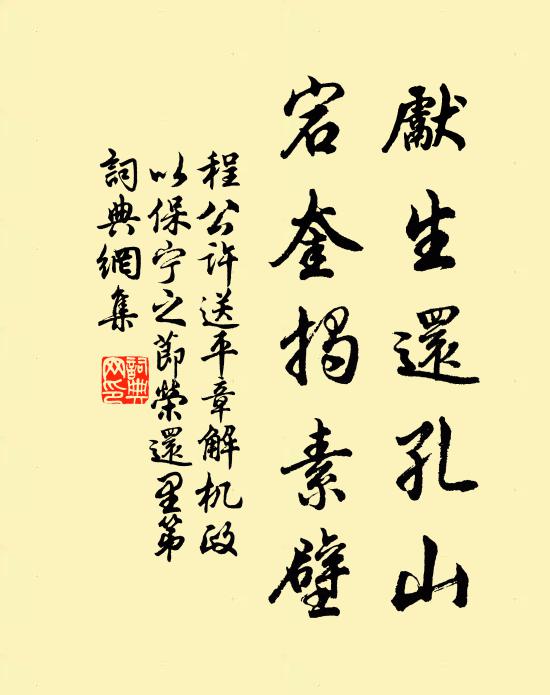 獻生還孔山
岩奎揭素壁
程公許送平章解机政
以保宁之節榮還里第
詞典網集
詞典
网印